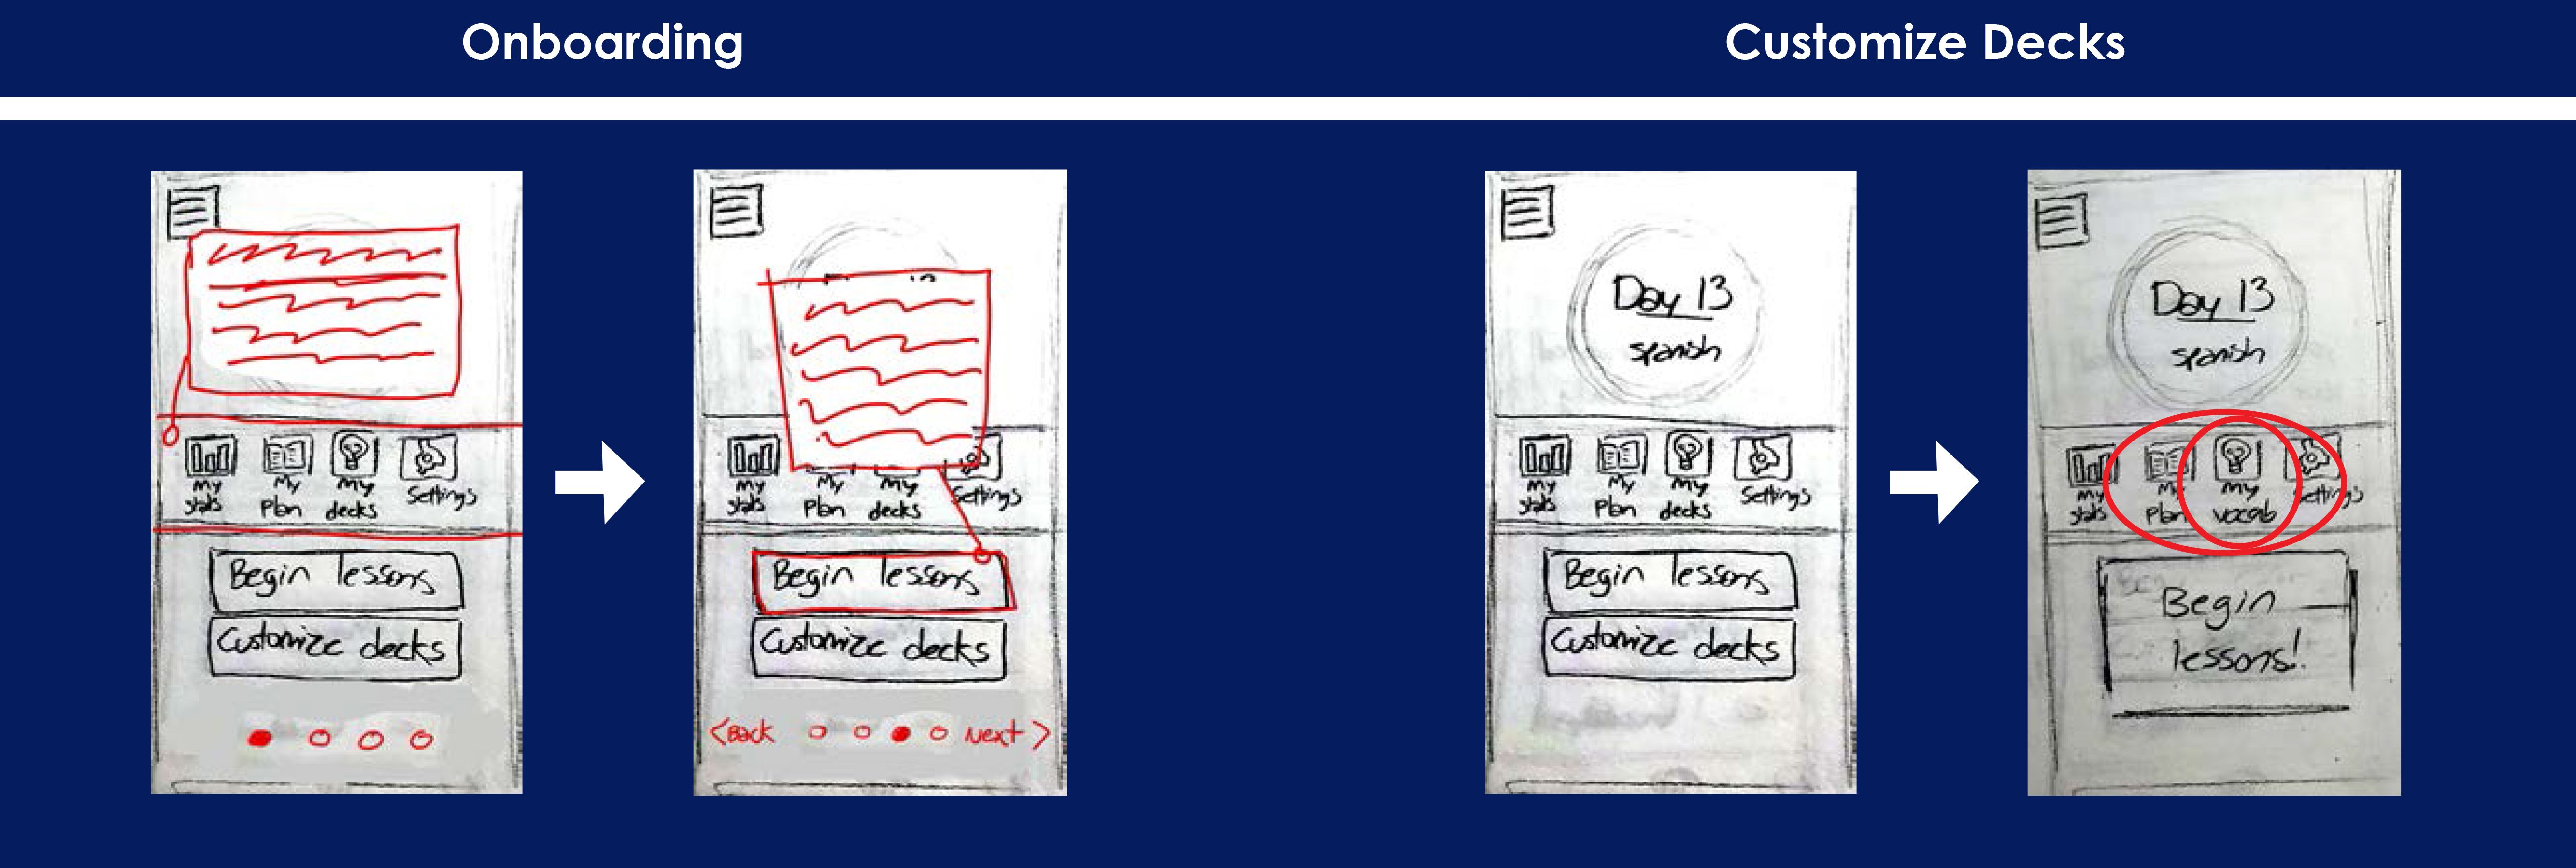 Onboarding
Customize Decks
My stats
My Plan
My decks
Settings
Begin lessons
Customize decks
My stats
My Plan
My decks
Settings
Begin lessons
Customize decks
<Back
Next >
Day 13
spanish
My stats
My Plan
My decks
Settings
Begin lessons
Customize decks
Day 13
spanish
My stats
My Plan
My vocab
Settings
Begin
lessons!